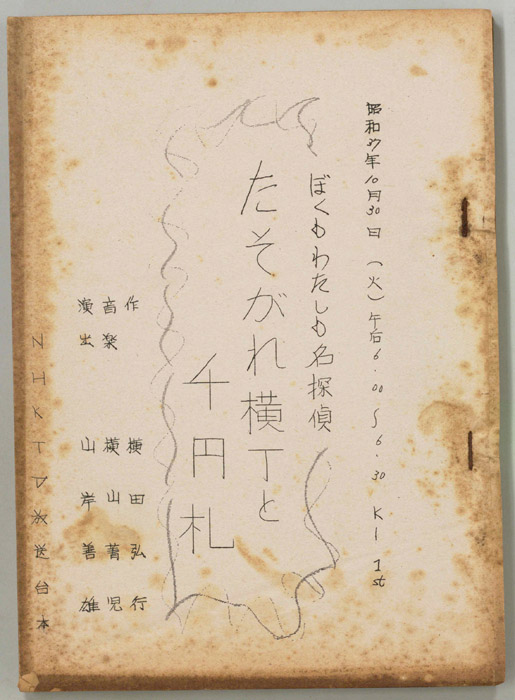 昭和37年10月30日（火）午后6.00〜6.30 K1 1st
ぼくもわたしも名探偵
たそがれ横丁と
千円札
作 横田弘行
音楽 横山菁児
演出 山岸善雄
NHKTV放送台本